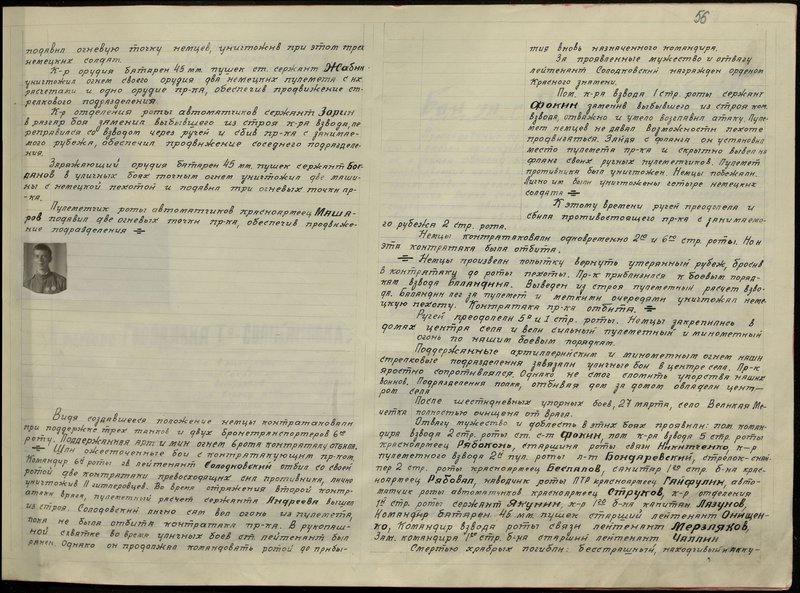 подавил огневую точку немцев, уничтожив при этом трех
немецких солдат.
К-р орудия батареи 45 мм. пушек ст. сержант Жабин
уничтожил огнем своего орудия два немецких пулемета с их
расчетами и одно орудие пр-ка, обеспечив продвижение ст-
релкового подразделения.
К-р отделения роты автоматчиков сержант Зорин
в разгар боя заменил выбывшего из строя к-ра взвода, пе-
реправился со взводом через ручей и сбив пр-ка с занимае-
мого рубежа, обеспечил продвижение соседнего подразделе-
ния.
Заряжающий орудия батареи 45 мм. пушек сержант Бог-
данов в уличных боях точным огнем уничтожил две маши-
ны с немецкой пехотой и подавил три огневых точки пр-
-ка.
Пулеметчик роты автоматчиков красноармеец Маша-
ров подавил две огневых точки пр-ка, обеспечив продвиже-
ние подразделения
Видя создавшееся положение немцы контратаковали
при поддержке трех танков и двух бронетранспортеров 6ую
роту. Поддержанная арт и мин. огнем 6 рота контратаку отбила.
Шли ожесточенные бои с контратакующим пр-ком.
Командир 6ой роты гв лейтенант Солодковский отбил со своей
ротой две контратаки превосходящих сил противника, лично
уничтожив 11 гитлеровцев. Во время отражения второй контр-
атаки врага, пулеметный расчет сержанта Андреева вышел
из строя. Солодовский лично сам вел огонь из пулемета,
пока не была отбита контратака пр-ка. В рукопаш-
ной схватке во время уличных боев ст. лейтенант был
ранен. Однако он продолжал командовать ротой до прибы-
56
тия вновь назначенного командира.
За проявленные мужество и отвагу
лейтенант Солодковский награжден орденом
Красного знамени.
Пом. к-ра взвода 1 стр. роты сержант
Фокин заменив выбывшего из строя ком.
взвода, отважно и умело возглавил атаку. Пуле-
мет немцев не давал возможности пехоте
продвигаться. Зайдя с фланга он установил
место пулемета пр-ка и скрытно вывел на
фланг своих ручных пулеметчиков. Пулемет
противника был уничтожен. Немцы побежали.
Лично им были уничтожены четыре немецких
солдата
К этому времени ручей преодолела и
сбила противостоящего пр-ка с занимаемо-
го рубежа 2 стр. рота.
Немцы контратаковали одновременно 2ую и 6ую стр. роты. Но и
эта контратака была отбита.
Немцы произвели попытку вернуть утерянный рубеж, бросив
в контратаку до роты пехоты. Пр-к приблизился к боевым поряд-
кам взвода Баландина. Выведен из строя пулеметный расчет взво-
да. Баландин лег за пулемет и меткими очередями уничтожал неме-
цкую пехоту. Контратака пр-ка отбита.
Ручей преодолели 5я и 1 стр. роты. Немцы закрепились в
домах центра села и вели сильный пулеметный и минометный
огонь по нашим боевым порядкам.
Поддержанные артиллерийским и минометным огнем наши
стрелковые подразделения завязали уличные бои в центре села. Пр-к
яростно сопротивлялся. Однако, не смог сломить упорства наших
воинов. Подразделения полка, отбивая дом за домом овладели цент-
ром села
После шестидневных упорных боев, 27 марта, село Великая Ме-
четка полностью очищена от врага.
Отвагу мужество и доблесть в этих боях проявили: пом. коман-
дира взвода 2 стр. роты ст. с-т Фокин, пом к-ра взвода 5 стр. роты
красноармеец Рябоконь, старшина роты связи Никитенко, к-р
пулеметного взвода 2ой пул. роты л-т Бондаревский, стрелок-снай-
пер 2 стр. роты красноармеец Беспалов, санитар 1ой стр. б-на крас-
ноармеец Рябовал, наводчик роты ПТР красноармеец Гайфулин, авто-
матчик роты автоматчиков красноармеец Струков, к-р отделения
1ой стр. роты сержант Якунин, к-р 1го б-на капитан Лазунов,
Командир батареи 45 мм. пушек старший лейтенант Онищен-
ко, Командир взвода роты связи лейтенант Мерзляков,
Зам. командира 1го стр. б-на старший лейтенант Чаплин
Смертью храбрых погибли: бесстрашный, находчивый и